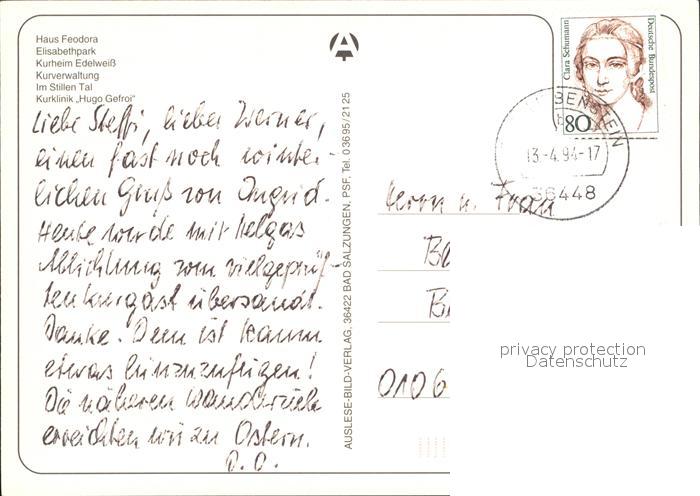 Haus Feodora
Elisabethpark
Kurheim Edelweiß
Kurverwaltung
Im Stillen Tal
Kurklinik „Hugo Gefroi"
Liebe Steffi, lieber Werner,
einen fast noch winter-
lichen Gruß von Ingrid.
Heute wurde mir Helgas
Ablichtung vom vielgeprüf-
ten Kurgast übersandt.
Danke. Dem ist kaum
etwas hinzuzufügen!
Die näheren Wanderziele
erreichten wir zu Ostern.
D. O.
AUSLESE-BILD-VERLAG, 36422 BAD SALZUNGEN, PSF, Tel. 03695/2125
Clara Schumann
Deutsche Bundespost
80
BENSTEIN
13-4.94-17
36448
Herrn u. Frau
0106
privacy protection
Datenschutz